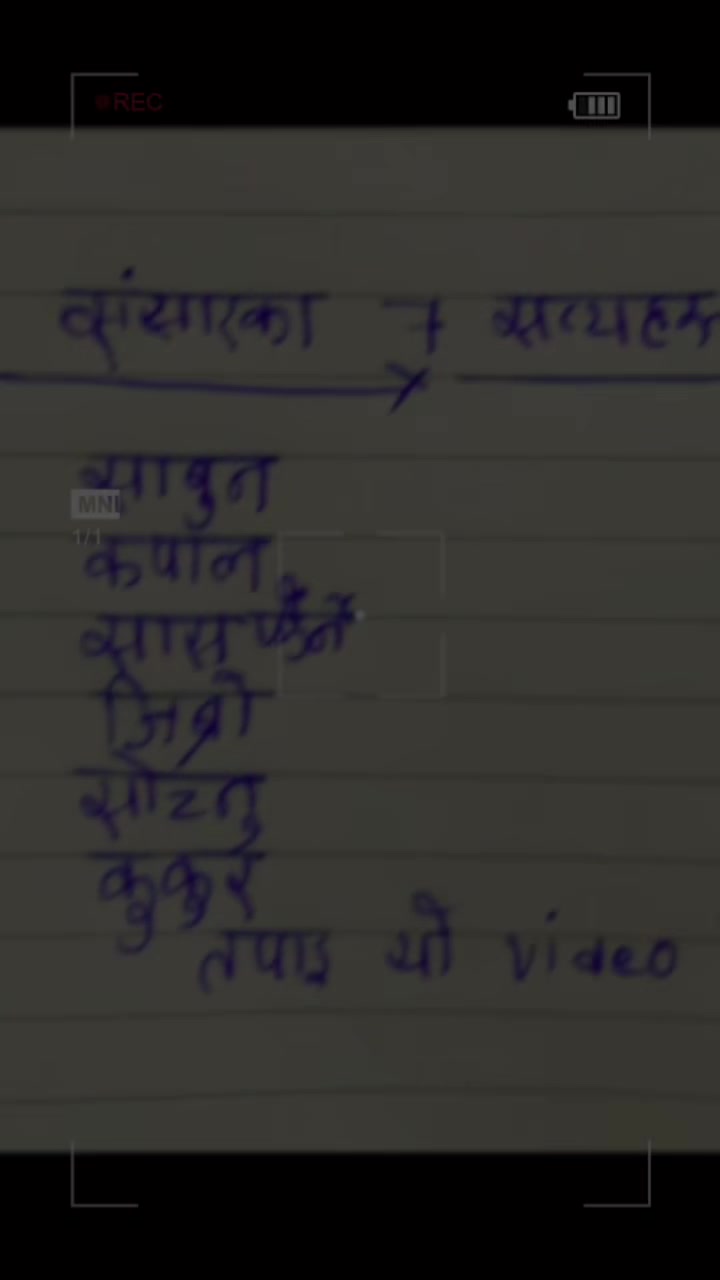 REC
संसारका 7 सत्यहरु
साबुन
MN
1/1
कपाल
सास फेर्ने
जिब्रो
सोच्नु
कुकुर
तपाइ यो video